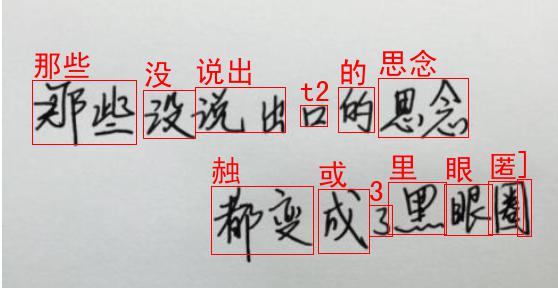 那些 没 说出 t2 的 思念
那些没说出口的思念
或 3 里 眼 匿]
都变成了黑眼圈